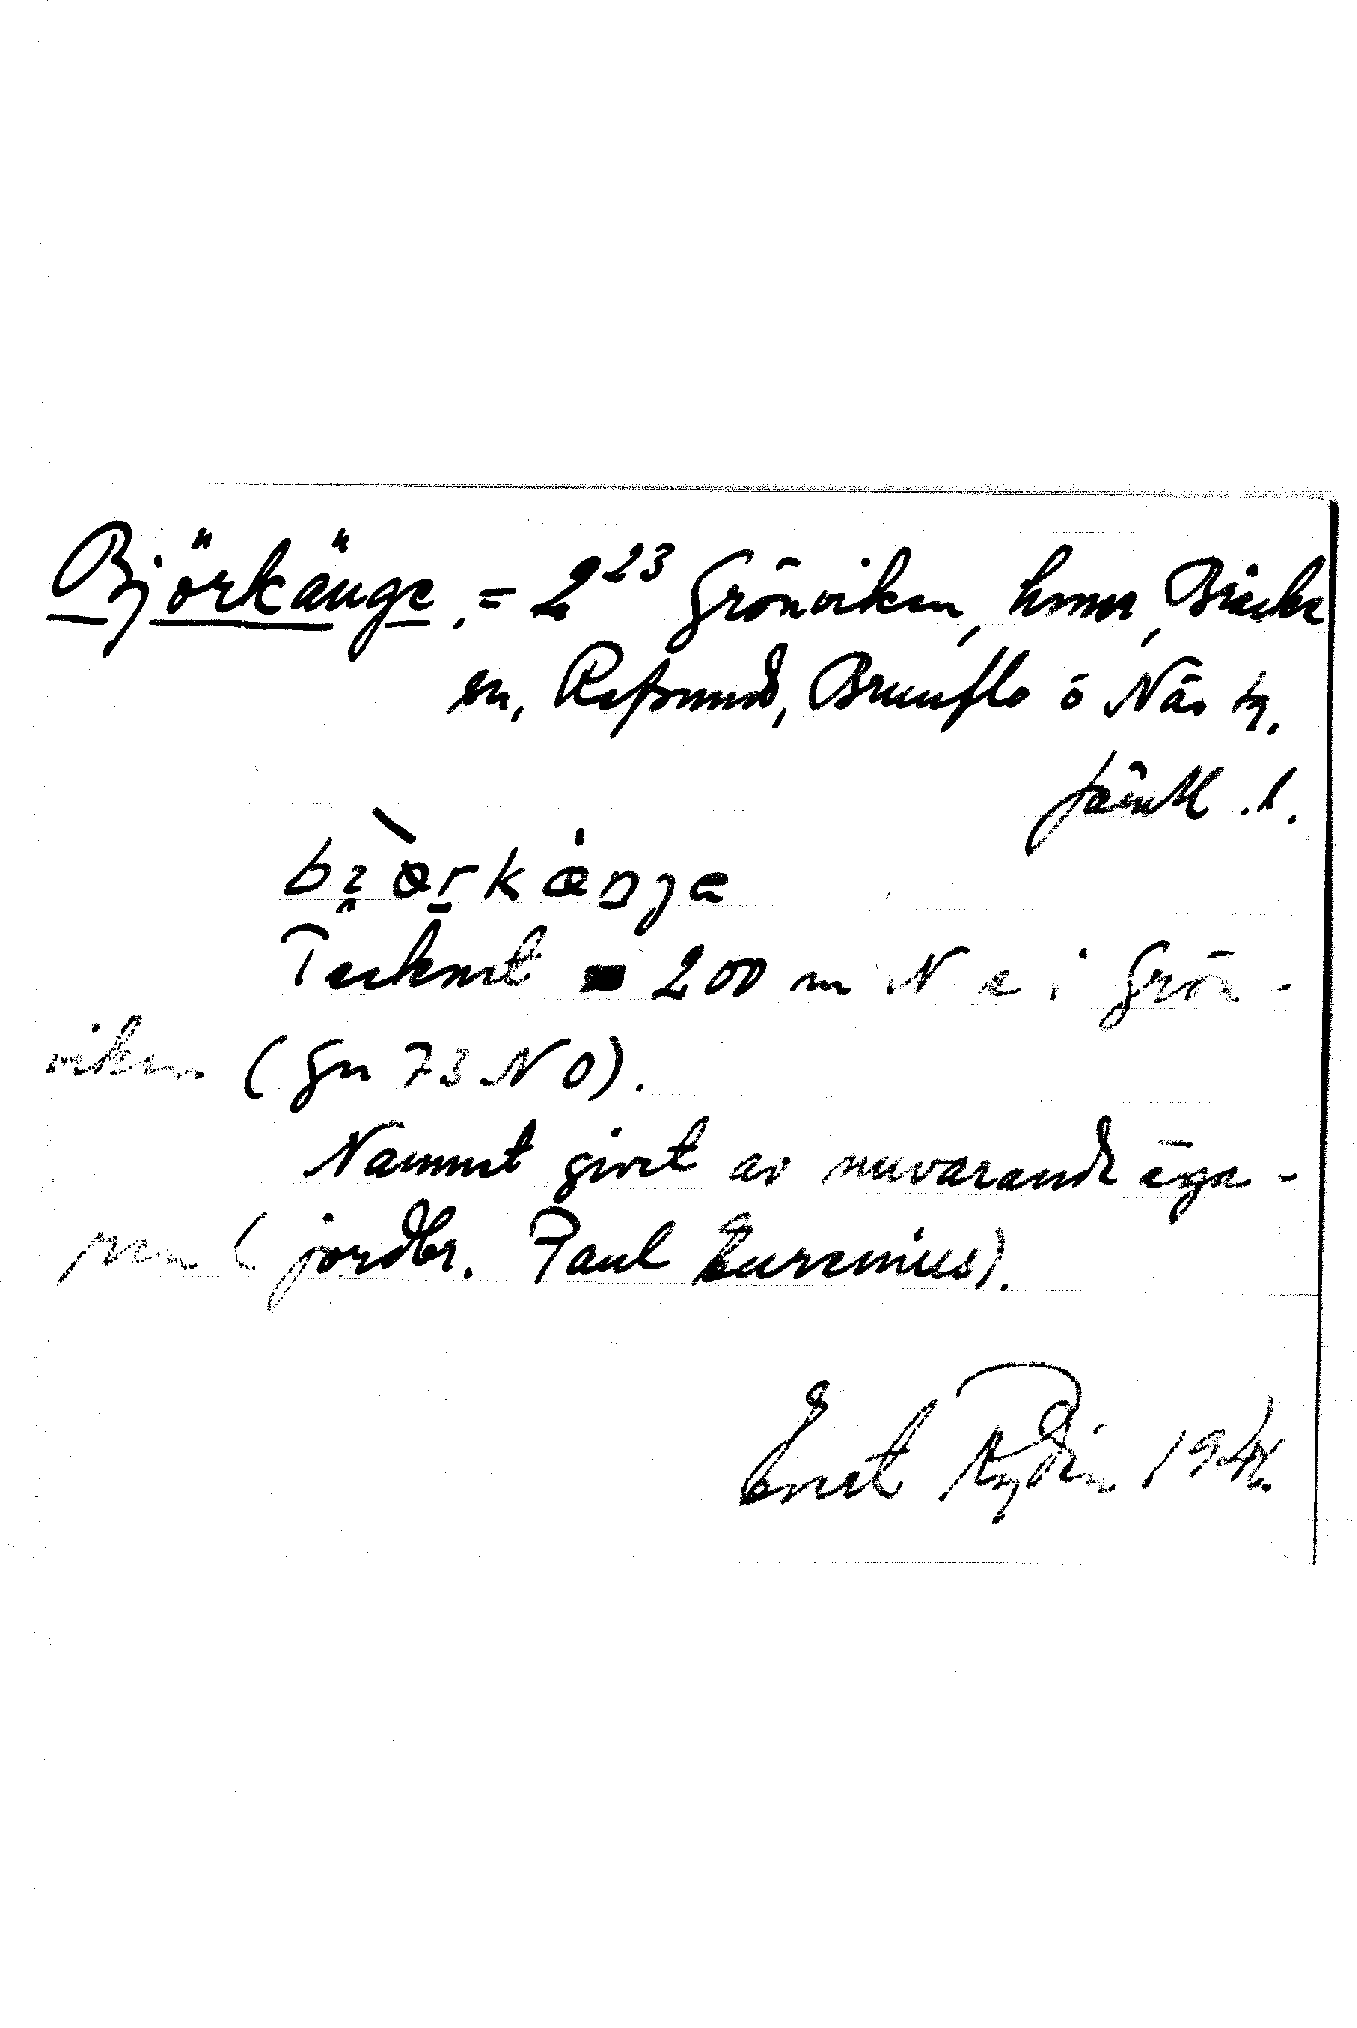 Björkänge, = 2²³ Grönviken, hmn, Bräcke
sn, Refsunds, Brunflo o Näs tg.
Jämtl. l.
bi̯òrkáŋgə
Tecknet = 200 m N e i Grön-
viken (gn 73 NO).
Namnet givet av nuvarande äga-
ren (jordbr. Paul Eurenius).
Ernst Rydin 194